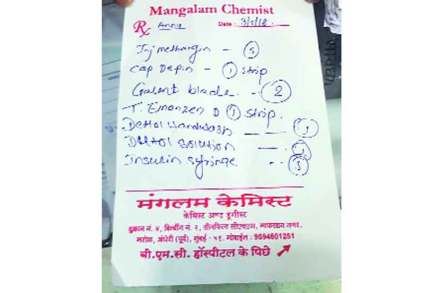 Mangalam Chemist
Rx Date : 3/5/18
Inj methargin - 5
Cap Depin - 1 strip
Galant blade - 2
T. Emanzen D 1 strip.
Dettol Handwash - 1
Dettol solution - 1
Insulin syringe - 3
मंगलम केमिस्ट
केमिस्ट अण्ड ड्रगीस्ट
दुकान नं. ४, बिल्डींग नं. २,
मरोळ, अंधेरी (पूर्व), मुंबई - ५९. मोबाईल : 9594601251
बी.एम.सी. हॉस्पीटल के पिछे